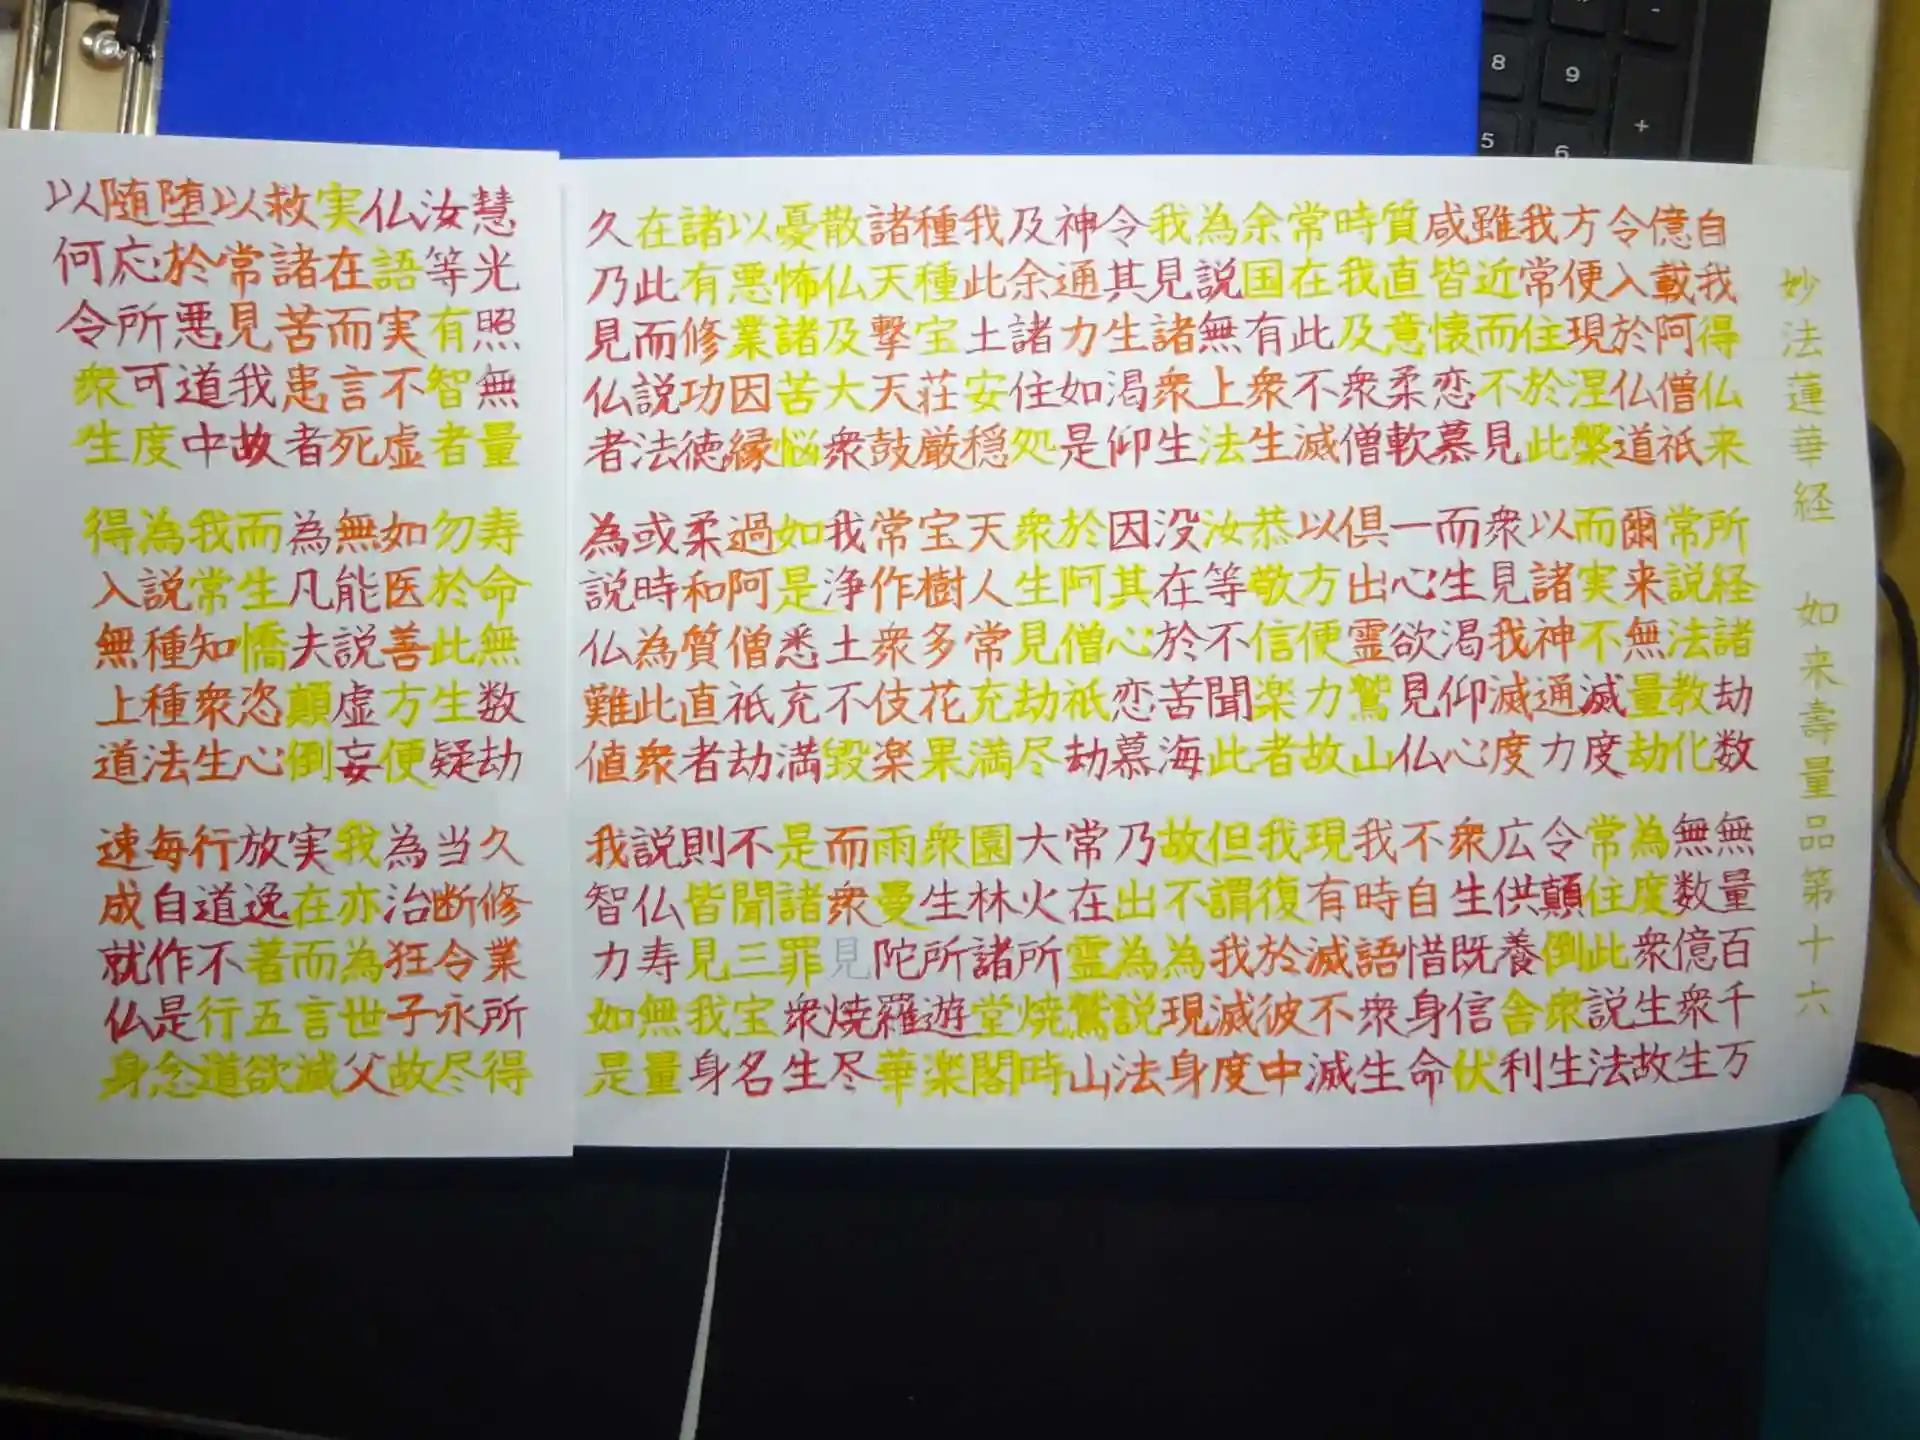 妙法蓮華経 如来壽量品第十六
自我得仏来 所経諸劫数 無量百千万
億載阿僧祇 常説法教化 無数億衆生
令入於仏道 爾来無量劫 為度衆生故
方便現涅槃 而実不滅度 常住此説法
我常住於此 以諸神通力 令顛倒衆生
雖近而不見 衆見我滅度 広供養舎利
咸皆懐恋慕 而生渇仰心 衆生既信伏
質直意柔軟 一心欲見仏 不自惜身命
時我及衆僧 倶出霊鷲山 我時語衆生
常在此不滅 以方便力故 現有滅不滅
余国有衆生 恭敬信楽者 我復於彼中
為説無上法 汝等不聞此 但謂我滅度
我見諸衆生 没在於苦海 故不為現身
令其生渇仰 因其心恋慕 乃出為説法
神通力如是 於阿僧祇劫 常在霊鷲山
及余諸住処 衆生見劫尽 大火所焼時
我此土安穏 天人常充満 園林諸堂閣
種種宝荘厳 宝樹多花果 衆生所遊楽
諸天撃天鼓 常作衆伎楽 雨曼陀羅華
散仏及大衆 我浄土不毀 而衆見焼尽
憂怖諸苦悩 如是悉充満 是諸罪衆生
以悪業因縁 過阿僧祇劫 不聞三宝名
諸有修功徳 柔和質直者 則皆見我身
在此而説法 或時為此衆 説仏寿無量
久乃見仏者 為説仏難値 我智力如是
慧光照無量 寿命無数劫 久修業所得
汝等有智者 勿於此生疑 当断令永尽
仏語実不虚 如医善方便 為治狂子故
実在而言死 無能説虚妄 我亦為世父
救諸苦患者 為凡夫顛倒 実在而言滅
以常見我故 而生憍恣心 放逸著五欲
堕於悪道中 我常知衆生 行道不行道
随応所可度 為説種種法 毎自作是念
以何令衆生 得入無上道 速成就仏身
8 9
+
5 6